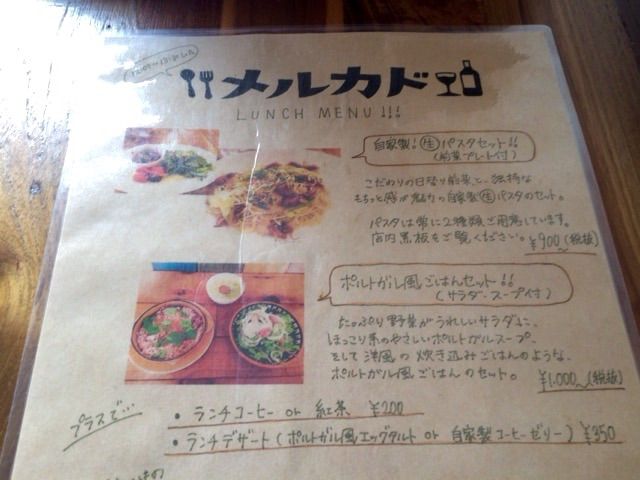 メルカド
LUNCH MENU!!!
自家製!生パスタセット!!
(前菜プレート付)
こだわりの日替り前菜と、独特な
もちっと感が魅力の自家製生パスタのセット。
パスタは常に2種類ご用意しています。
店内黒板をご覧ください。 ¥900(税抜)
ポルトガル風ごはんセット!!
(サラダ・スープ付)
たっぷり野菜がうれしいサラダに、
ほっこり系のやさしいポルトガルスープ、
そして洋風の炊き込みごはんのような、
ポルトガル風ごはんのセット。 ¥1,000~(税抜)
プラスで…
・ランチコーヒー or 紅茶 ¥200
・ランチデザート(ポルトガル風エッグタルト or 自家製コーヒーゼリー) ¥350